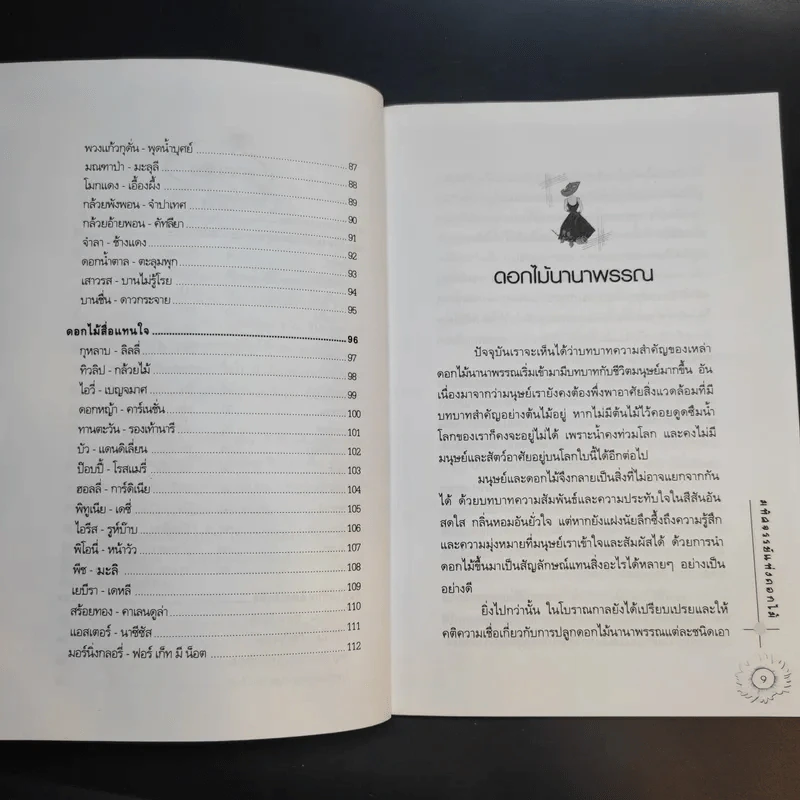 พวงแก้วกุดั่น - พุดน้ำบุศย์ 87
มณฑาป่า - มะลุลี 88
โมกแดง - เอื้องผึ้ง 89
กล้วยพังพอน - จำปาเทศ 90
กล้วยอ้ายพอน - คัทลียา 91
จำลา - ช้างแดง 92
ดอกน้ำตาล - ตะลุมพุก 93
เสาวรส - บานไม่รู้โรย 94
บานชื่น - ดาวกระจาย 95
ดอกไม้สื่อแทนใจ 96
กุหลาบ - ลิลลี่ 97
ทิวลิป - กล้วยไม้ 98
ไอวี่ - เบญจมาศ 99
ดอกหญ้า - คาร์เนชั่น 100
ทานตะวัน - รองเท้านารี 101
บัว - แดนดิเลี่ยน 102
ป๊อบปี้ - โรสแมรี่ 103
ฮอลลี่ - การ์ดิเนีย 104
พิทูเนีย - เดซี่ 105
ไอริส - รูห์บ๊าบ 106
พีโอนี่ - หน้าวัว 107
พีช - มะลิ 108
เยบีรา - เดหลี 109
สร้อยทอง - คาเลนดูล่า 110
แอสเตอร์ - นาซีซัส 111
มอร์นิ่งกลอรี่ - ฟอร์ เก็ท มี น็อต 112
ดอกไม้นานาพรรณ
ปัจจุบันเราจะเห็นได้ว่าบทบาทความสำคัญของเหล่า
ดอกไม้นานาพรรณเริ่มเข้ามามีบทบาทกับชีวิตมนุษย์มากขึ้น อัน
เนื่องมาจากว่ามนุษย์เรายังคงต้องพึ่งพาอาศัยสิ่งแวดล้อมที่มี
บทบาทสำคัญอย่างต้นไม้อยู่ หากไม่มีต้นไม้ไว้คอยดูดซึมน้ำ
โลกของเราก็คงจะอยู่ไม่ได้ เพราะน้ำคงท่วมโลก และคงไม่มี
มนุษย์และสัตว์อาศัยอยู่บนโลกใบนี้ได้อีกต่อไป
มนุษย์และดอกไม้จึงกลายเป็นสิ่งที่ไม่อาจแยกจากกัน
ได้ ด้วยบทบาทความสัมพันธ์และความประทับใจในสีสันอัน
สดใส กลิ่นหอมอันยั่วใจ แต่หากยังแฝงนัยลึกซึ้งถึงความรู้สึก
และความมุ่งหมายที่มนุษย์เราเข้าใจและสัมผัสได้ ด้วยการนำ
ดอกไม้ขึ้นมาเป็นสัญลักษณ์แทนสิ่งอะไรได้หลายๆ อย่างเป็น
อย่างดี
ยิ่งไปกว่านั้น ในโบราณกาลยังได้เปรียบเปรยและให้
คติความเชื่อเกี่ยวกับการปลูกดอกไม้นานาพรรณแต่ละชนิดเอา
มหัศจรรย์แห่งดอกไม้
๑